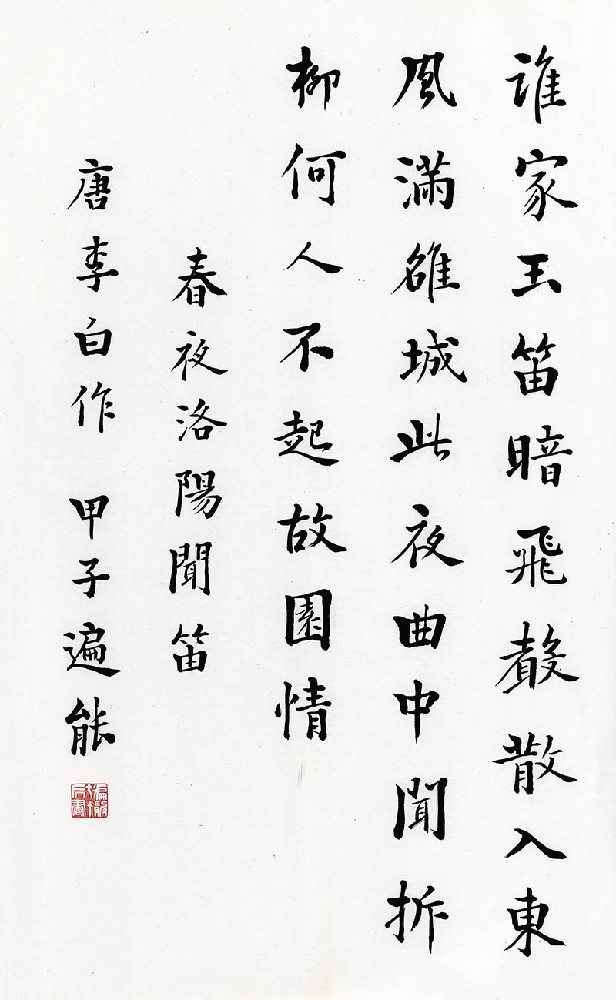 誰家玉笛暗飛聲散入東
風滿雒城此夜曲中聞折
柳何人不起故園情
春夜洛陽聞笛
唐李白作 甲子遍能